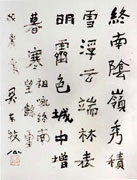 終南陰嶺秀積
雪浮雲端林表
明霽色城中增
暮寒
祖詠終南
望餘雪